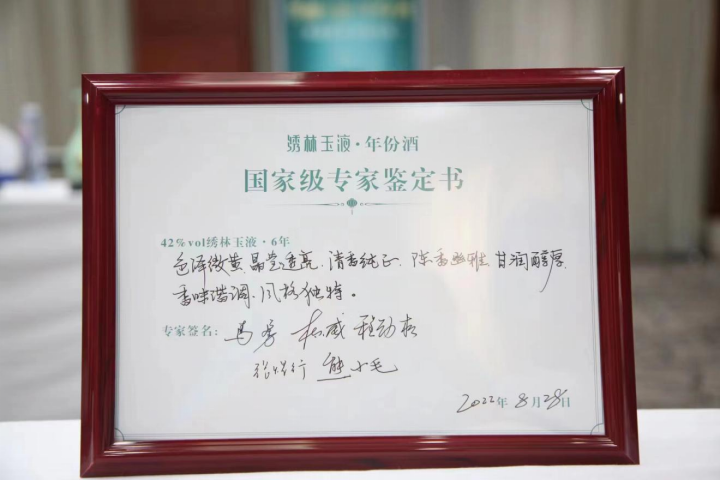 绣林玉液·年份酒
国家级专家鉴定书
42%vol绣林玉液·6年
色泽微黄、晶莹透亮、清香纯正、陈香幽雅、甘润醇厚、
香味谐调、风格独特。
专家签名：马勇 杨威 程劲松
熊小毛
2022年8月28日